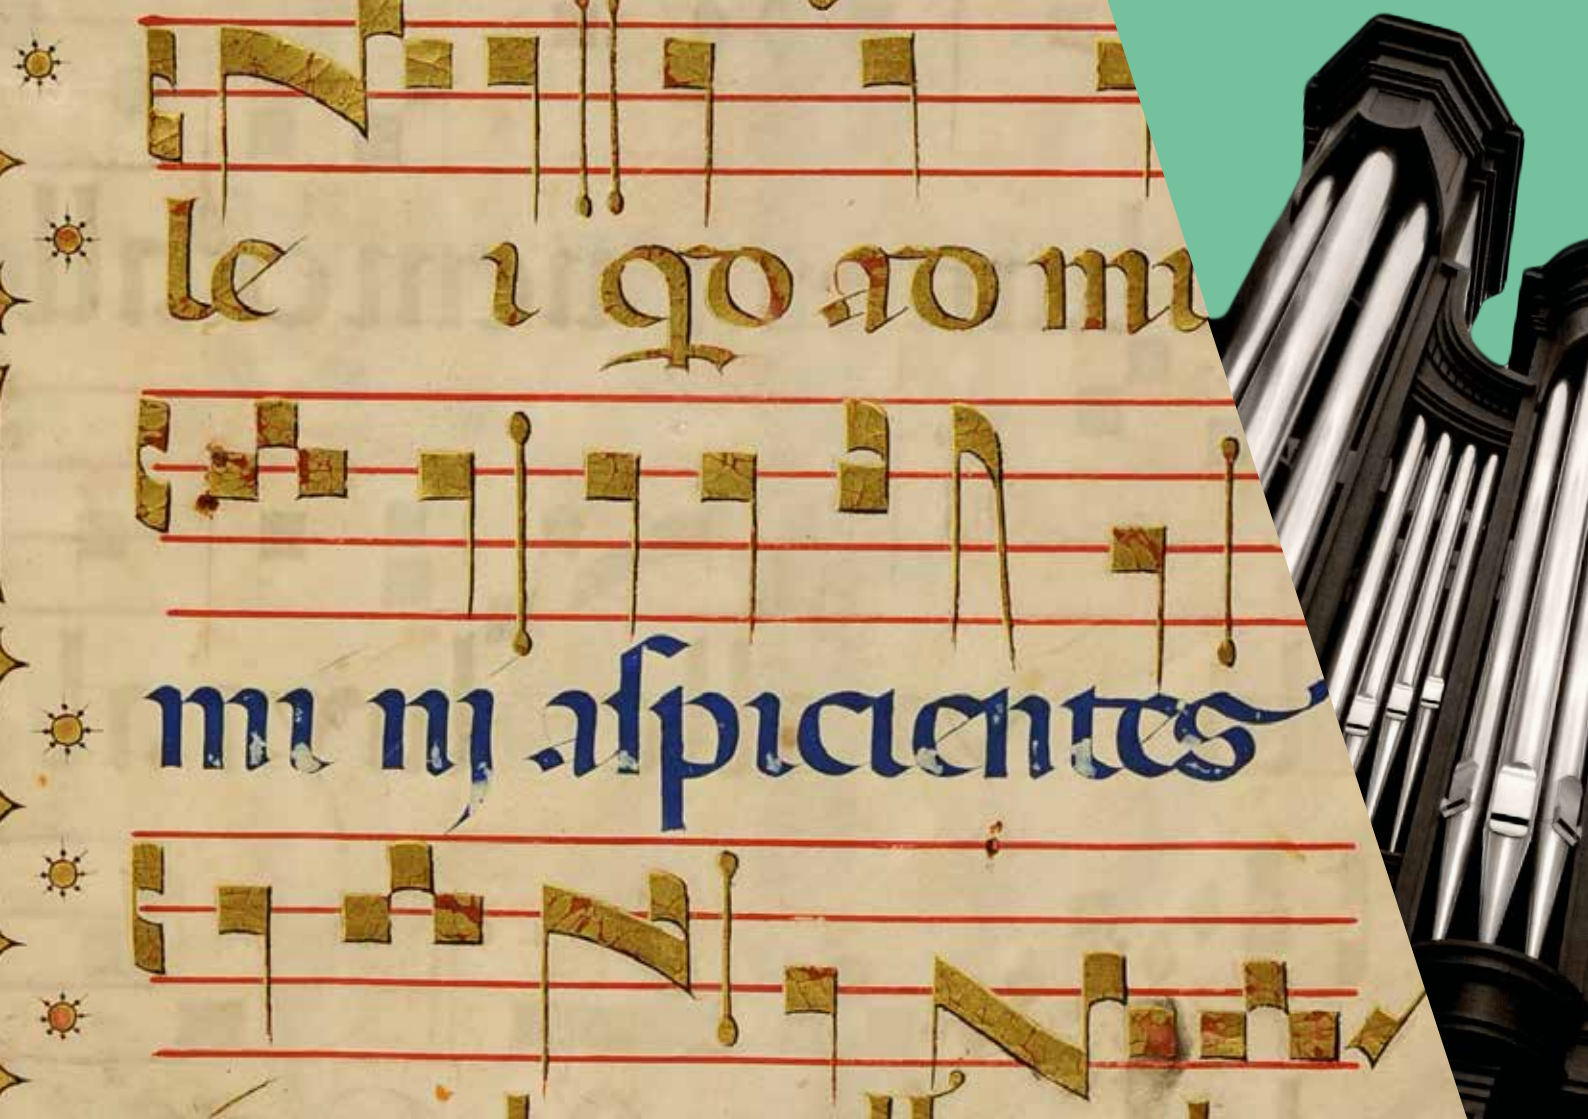 le i qd ad mi
mi nj aſpicientes